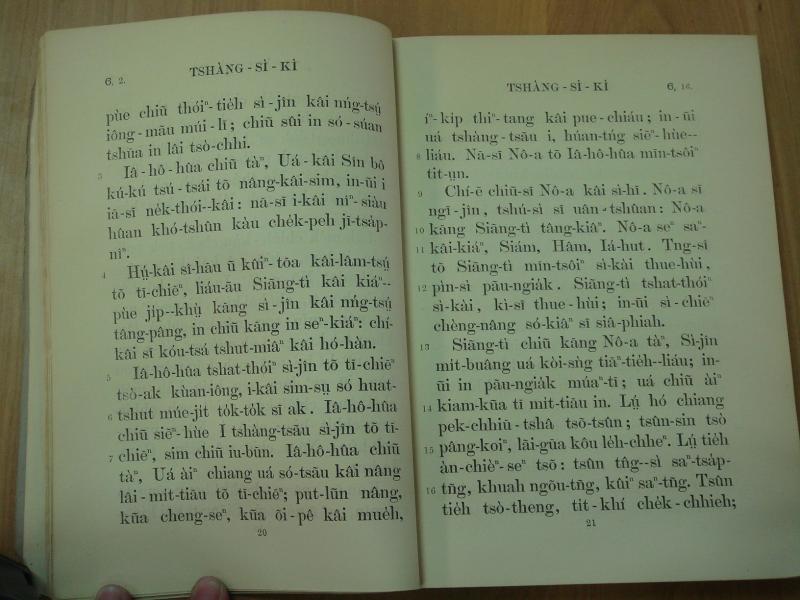 6, 2.
TSHÀNG - SÌ - KÌ
pùe chiũ thóiⁿ-tie̍h sì-jîn kâi nńg-tsṳ́
iông-māu múi-lĩ; chiũ sûi in só-súan
tshũa in lâi tsò-chhi.
3 Iâ-hô-hûa chiũ tàⁿ, Uá-kâi Sîn bô
kú-kú tsú-tsái tõ nâng-kâi-sim, in-ūi i
iā-sĩ ne̍k-thói--kâi: nā-sĩ i-kâi nîⁿ-siàu
hûan khó-tshûn kàu che̍k-peh jĩ-tsa̍p-
nîⁿ.
4 Hṳ́-kâi sî-hāu ũ kûiⁿ-tōa kâi-lâm-tsṳ́
tõ tī-chiēⁿ, liáu-āu Siāng-tì kâi kiáⁿ--
pùe ji̍p--khṳ̀ kāng sì-jîn kâi nńg-tsṳ́
tâng-pâng, in chiũ kāng in seⁿ-kiáⁿ: chí-
kâi sĩ kóu-tsá tshut-miâⁿ kâi hó-hàn.
5 Iâ-hô-hûa that-thóiⁿ sì-jîn tõ tī-chiēⁿ
tsò-ak kùan-iông, i-kâi sim-sṳ só huat-
6 tshut múe-ji̍t to̍k-to̍k sĩ ak. Iâ-hô-hûa
chiũ siēⁿ-hùe I tshàng-tsãu sì-jîn tõ tī-
7 chiēⁿ, sim chiũ iu-būn. Iâ-hô-hûa chiũ
tàⁿ, Uá àiⁿ chiang uá só-tsãu kâi nâng
lâi-mi̍t-tiāu tõ tī-chiēⁿ; put-lūn nâng,
kũa cheng-seⁿ, kũa õi-pê kâi mue̍h,
20
TSHÀNG - SÌ - KÌ
6, 16.
íⁿ-ki̍p thiⁿ-tang kâi pue-chiáu; in-ūi
uá tshàng-tsãu i, húan-tńg siēⁿ-hùe--
8 liáu. Nā-sĩ Nô-a tõ Iâ-hô-hûa mīn-tsôiⁿ
tit-ṳn.
9 Chí-ē chiũ-sĩ Nô-a kâi sì-hĩ. Nô-a sĩ
ngĩ-jîn, tshú-sì sĩ uân-tshûan: Nô-a
10 kāng Siāng-tì tâng-kiâⁿ. Nô-a seⁿ saⁿ-
11 kâi-kiáⁿ, Siám, Hâm, Iá-hut. Tng-sî
tõ Siāng-tì mīn-tsôiⁿ sì-kài thue-hùi,
12 pìn-sì pāu-ngia̍k. Siāng-tì tshat-thóiⁿ
sì-kài, kì-sĩ thue-hùi; in-ūi sì-chiēⁿ
chèng-nâng só-kiâⁿ sĩ siâ-phiah.
13 Siāng-tì chiũ kāng Nô-a tàⁿ, Sì-jîn
mi̍t-buâng uá kòi-sǹg tiãⁿ-tie̍h--liáu; in-
ūi in pāu-ngia̍k múaⁿ-tī; uá chiũ àiⁿ
14 kiam-kũa tī mi̍t-tiāu in. Lṳ́ hó chiang
pek-chhiũ-tshâ tsō-tsûn; tsûn-sin tsò
15 pâng-koiⁿ, lāi-gūa kôu le̍h-chhe. Lṳ́ tie̍h
àn-chièⁿ-seⁿ tsō: tsûn tn̂g--sì saⁿ-tsa̍p-
16 tn̄g, khuah ngõu-tn̄g, kûiⁿ saⁿ-tn̄g. Tsûn
tie̍h tsò-theng, ti̍t-khí che̍k-chhieh;
21